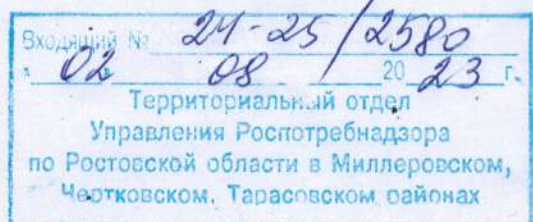 Входящий № 24-25/2580
« 02 » 08 20 23 г.
Территориальный отдел
Управления Роспотребнадзора
по Ростовской области в Миллеровском,
Чертковском, Тарасовском районах